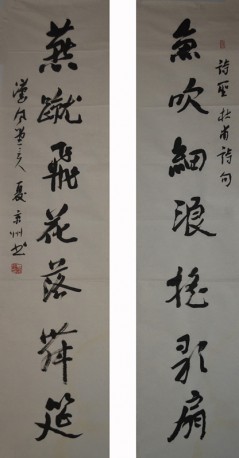 詩聖杜甫詩句
魚吹細浪搖歌扇
燕蹴飛花落舞筵
夏京州書